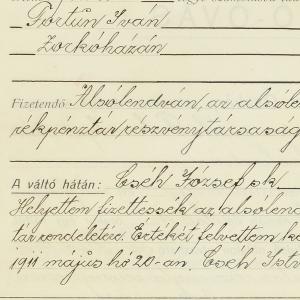 Fortün Iván
Zorkóházán
Fizetendő Alsólendván, az alsólen
rékpénztár részvénytársaság
A váltó hátán: Cséh József sk
Helyettem fizettessék az alsólend
tár rendeletére. Értékét felvettem
1911 május hó 20-án. Cséh Istv